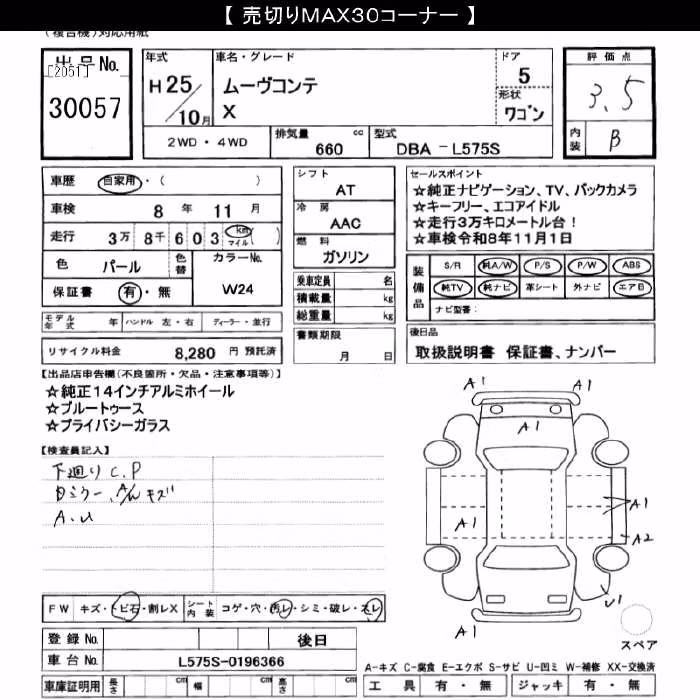 【 売切りMAX30コーナー 】
(複合機)対応用紙
出品No. [2051] 30057
年式 H25/10月
車名・グレード ムーヴコンテ X
ドア 5
形状 ワゴン
評価点 3.5
内装 B
2WD・4WD 排気量 660 cc 型式 DBA-L575S
車歴 自家用・( )
車検 8年 11月
走行 3万8千603 km マイル( )
色 パール 色替 カラーNo. W24
保証書 有・無
モデル年式 年 ハンドル 左・右 ディーラー・並行
リサイクル料金 8,280 円 預託済
シフト AT
冷房 AAC
燃料 ガソリン
乗車定員 名
積載量 kg
総重量 kg
書類期限 月 日
セールスポイント
☆純正ナビゲーション、TV、バックカメラ
☆キーフリー、エコアイドル
☆走行3万キロメートル台!
☆車検令和8年11月1日
装備品 S/R 純A/W P/S P/W ABS
純TV 純ナビ 革シート 外ナビ エアB
ナビ型番:
後日品
取扱説明書 保証書、ナンバー
【出品店申告欄(不良箇所・欠品・注意事項等)】
☆純正14インチアルミホイール
☆ブルートゥース
☆プライバシーガラス
【検査員記入】
下廻りC.P
日ミラー、A/Wキズ
A.U
A1 A1
A1
A1
A1
A2
A1 U1
スペア
FW キズ・トビ石・割レX シート内装 コゲ・穴・汚レ・シミ・破レ・スレ
登録No. 後日
車台No. L575S-0196366
車庫証明用 長さ cm 幅 cm 高さ cm
A-キズ C-腐食 E-エクボ S-サビ U-凹ミ W-補修 XX-交換済
工具 有・無 ジャッキ 有・無